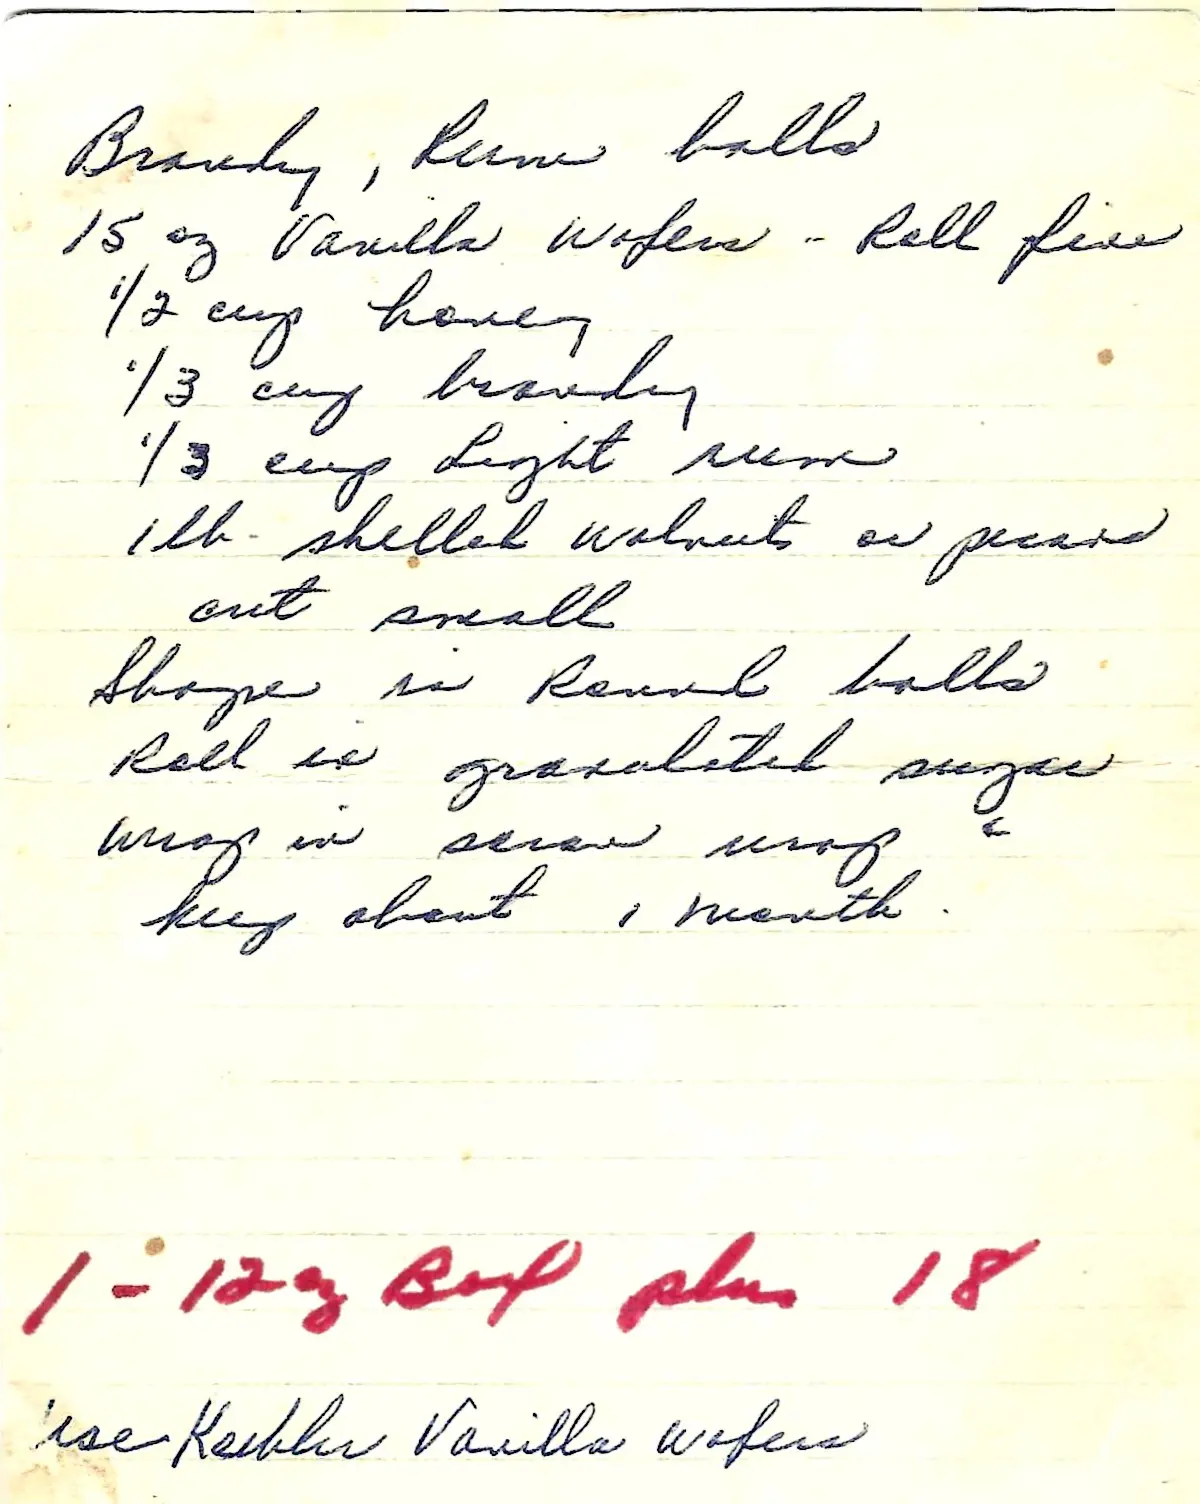 Brandy, Rum balls
15 oz Vanilla Wafers - Roll fine
1/2 cup honey
1/3 cup brandy
1/3 cup Light rum
1 lb. shelled walnuts or pecans
cut small
Shape in Round balls
Roll in granulated sugar
Wrap in saran wrap &
keep about 1 month.
1 - 12 oz Box plus 18
use Keebler Vanilla Wafers